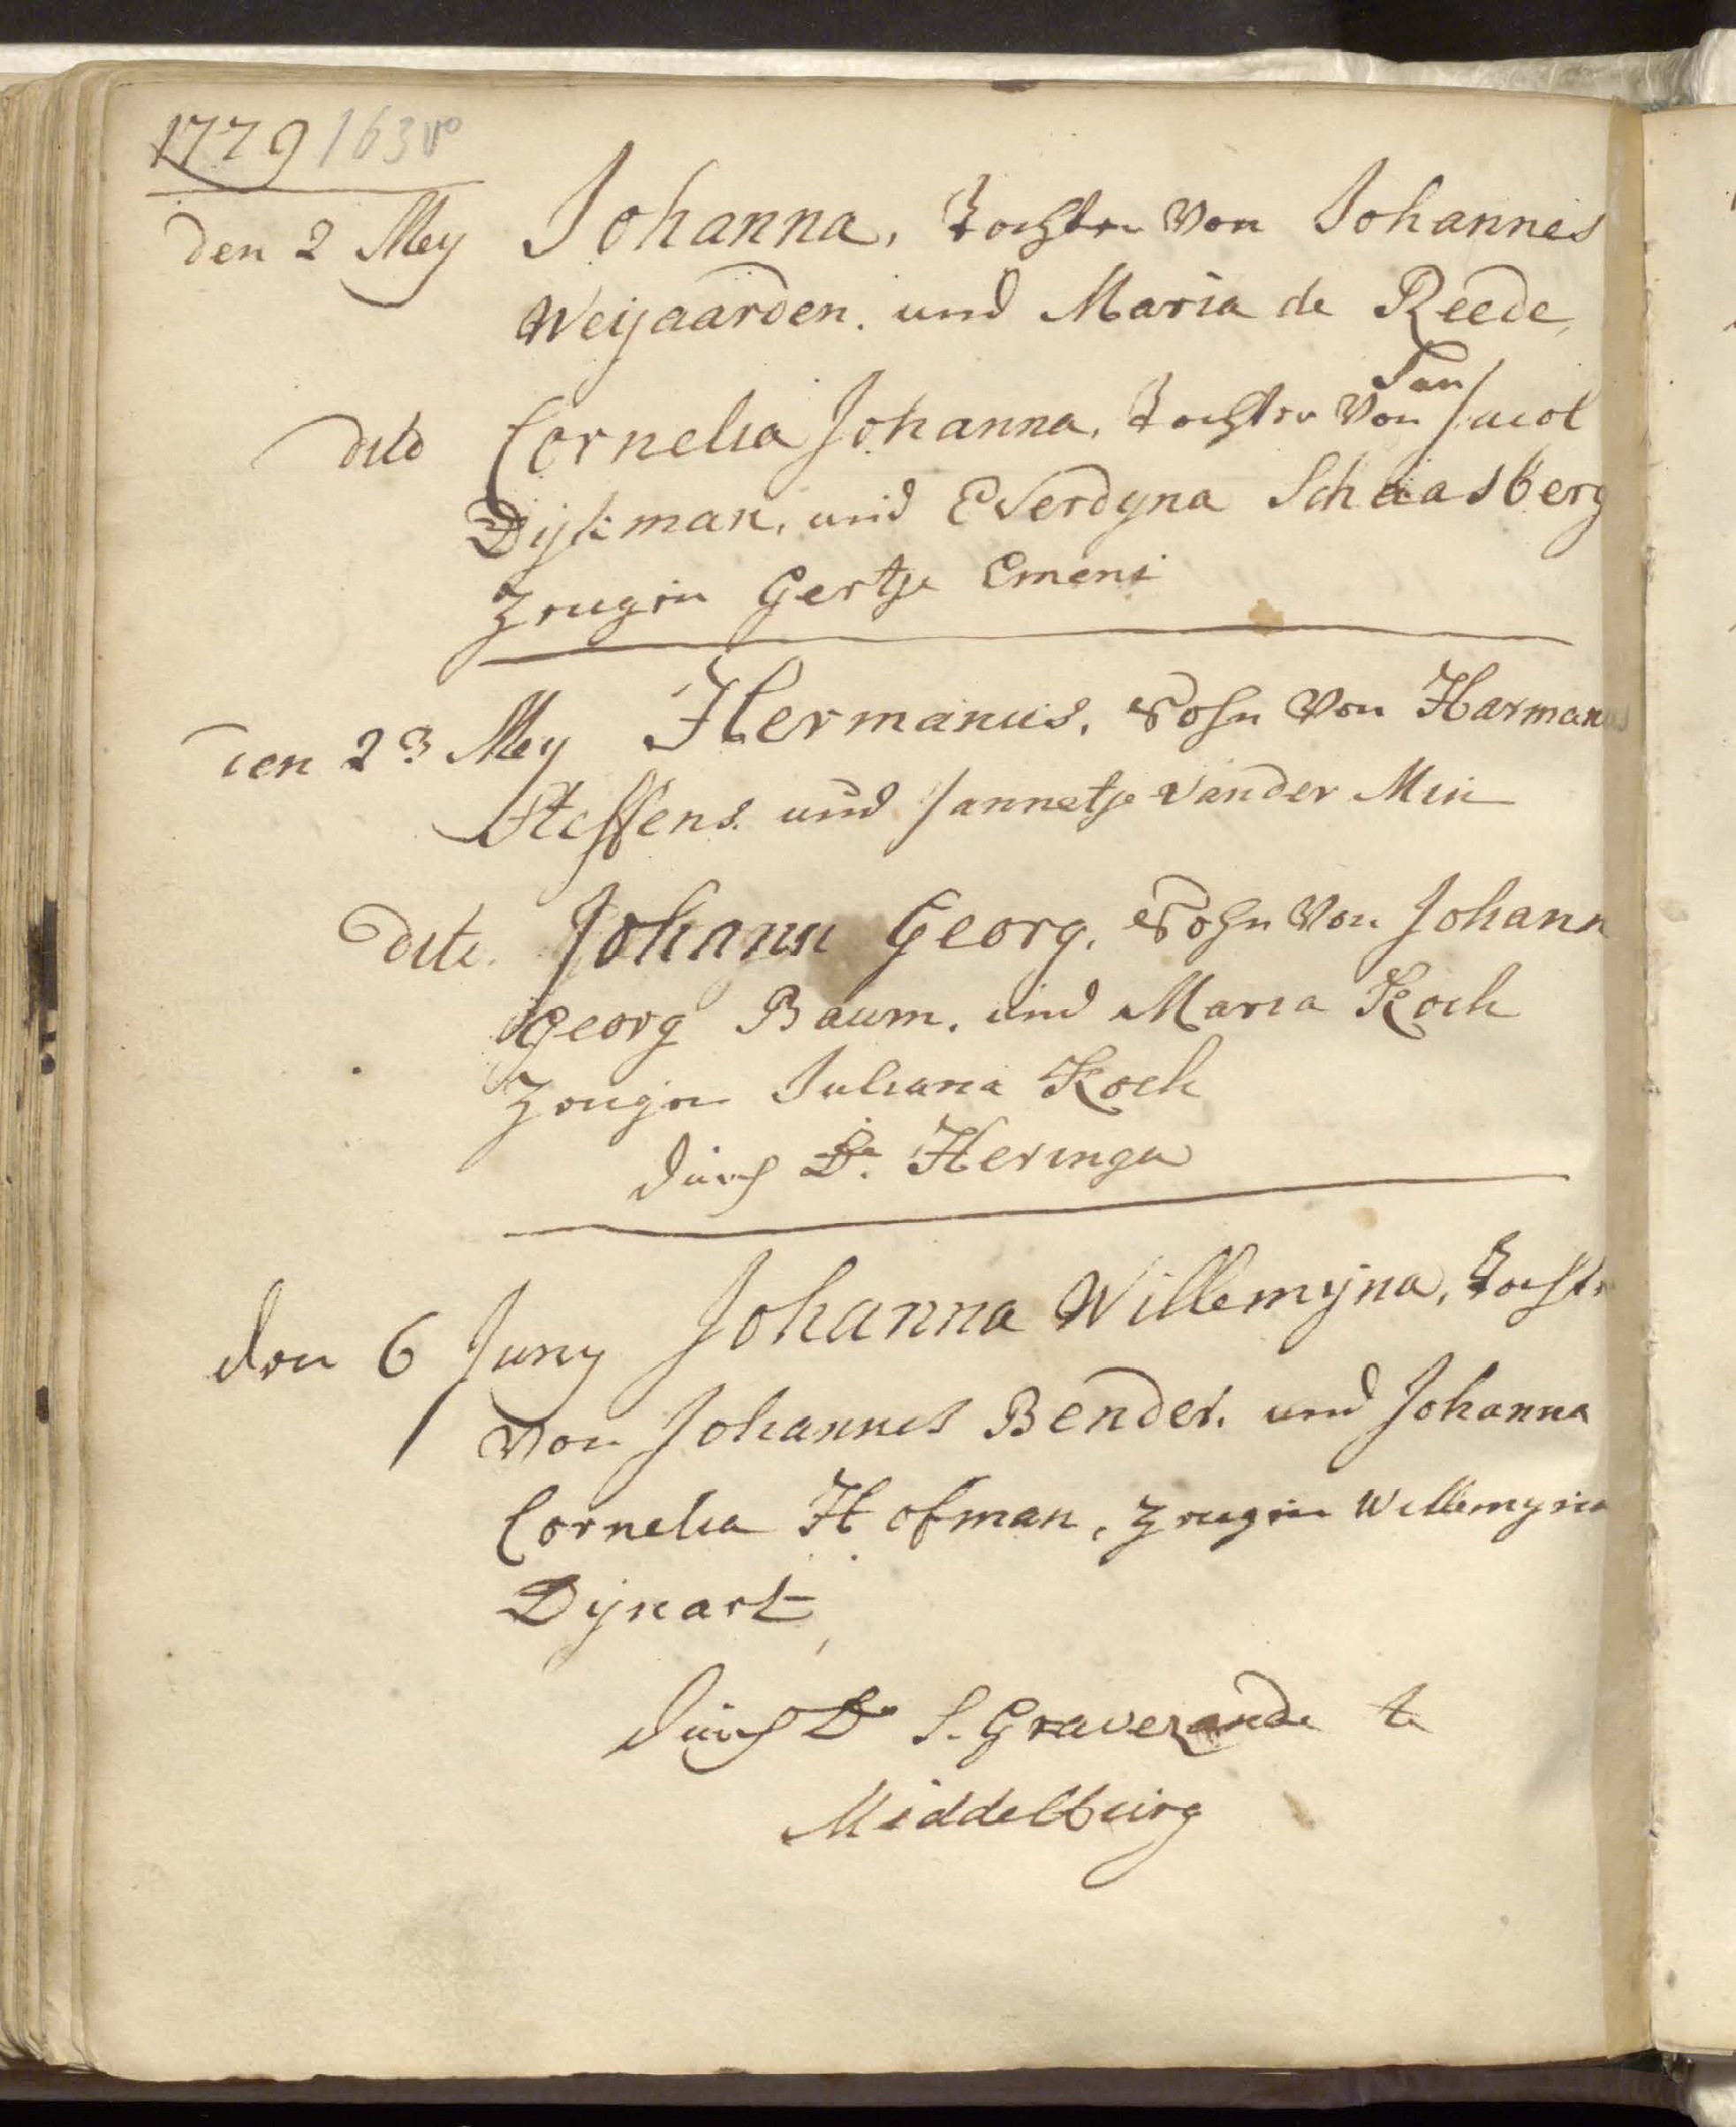 1779 163 vo
den 2 Mey Johanna, Tochter Von Johannes
Weijaarden. und Maria de Reede,
Jan
dito Cornelia Johanna, Tochter Von Jacob
Dijkman, und Everdyna Schaasberg
Zeugin Gertje Emeni
den 23 Mey Hermanus, Sohn Von Harmanus
Steffens und Jannetje Vander Min
dito Johann Georg, Sohn Von Johann
Georg Baum, und Maria Koch
Zeugin Juliana Koch
durch Ds. Heringa
den 6 Juny Johanna Willemyna, Tochter
Von Johannes Bender, und Johanna
Cornelia Hofman, Zeugin Willemyna
Dijnart,
durch Ds S. Graverande te
Middelburg